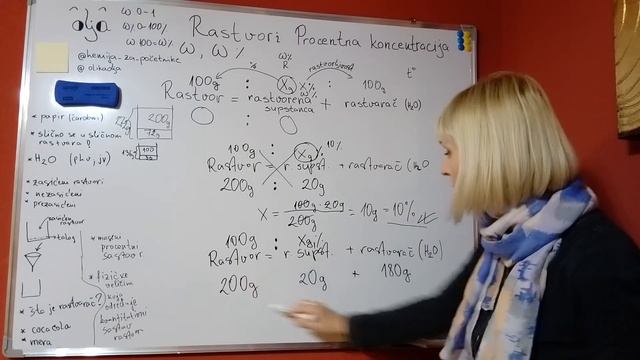 oljâ
ω 0-1
ω% 0-100%
ω·100=ω%
Rastvori Procentna koncentracija
ω, ω%
@hemija-za-početnike
@olikadja
rastvorljivost
t°
100g : X g X% 100g
Rastvor = rastvorena supstanca + rastvarač (H₂O)
* papir (čarobni)
* slično se u sličnom rastvara?
* H₂O (phv, jv)
200g
* zasićeni rastvori
* nezasićeni
* prezasićeni
100g : Xg 10%
Rastvor = r supst. + rastvarač (H₂O
200g : 20g
X = 100g · 20g / 200g = 10g = 10%
100g : Xg%
Rastvor = r supst. + rastvarač (H₂O)
200g 20g + 180g
zasićen rastvor
talog
* maseni procentni sastav
* fizičke veličine
koji određuje
kvantitativni sastav rastvora
* šta je rastvarač?
* coca cola
* mera